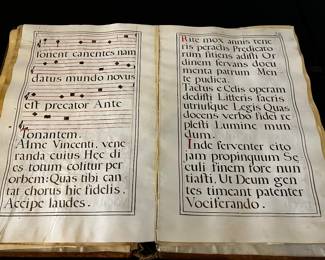 sonent canentes nam
datus mundo novus
est precator Ante
tonantem.
Alme Vincenti, vene
randa cuius Hec di
es totum colitur per
orbem: Quas tibi can
tat chorus hic fidelis.
Accipe laudes.
Rite mox annis tene
ris peractis Predicato
rum sitiens adisti Or
dinem fervens docu
menta patrum Men
te pudica.
Tactus e Celis operam
dedisti Litteris sacris
unusque Legis Quas
docens verbo fidei re
plesti Lumine mun
dum.
Inde ferventer cito
jam propinquum Se
culi finem fore nun
tiasti. Ut Deum gen
tes timeant patenter
Vociferando.